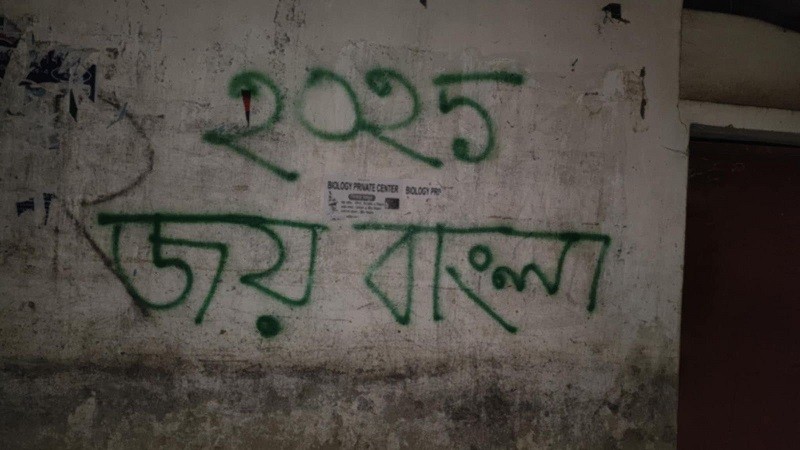 ২০২5
BIOLOGY PRIVATE CENTER BIOLOGY PRI
জয় বাংলা